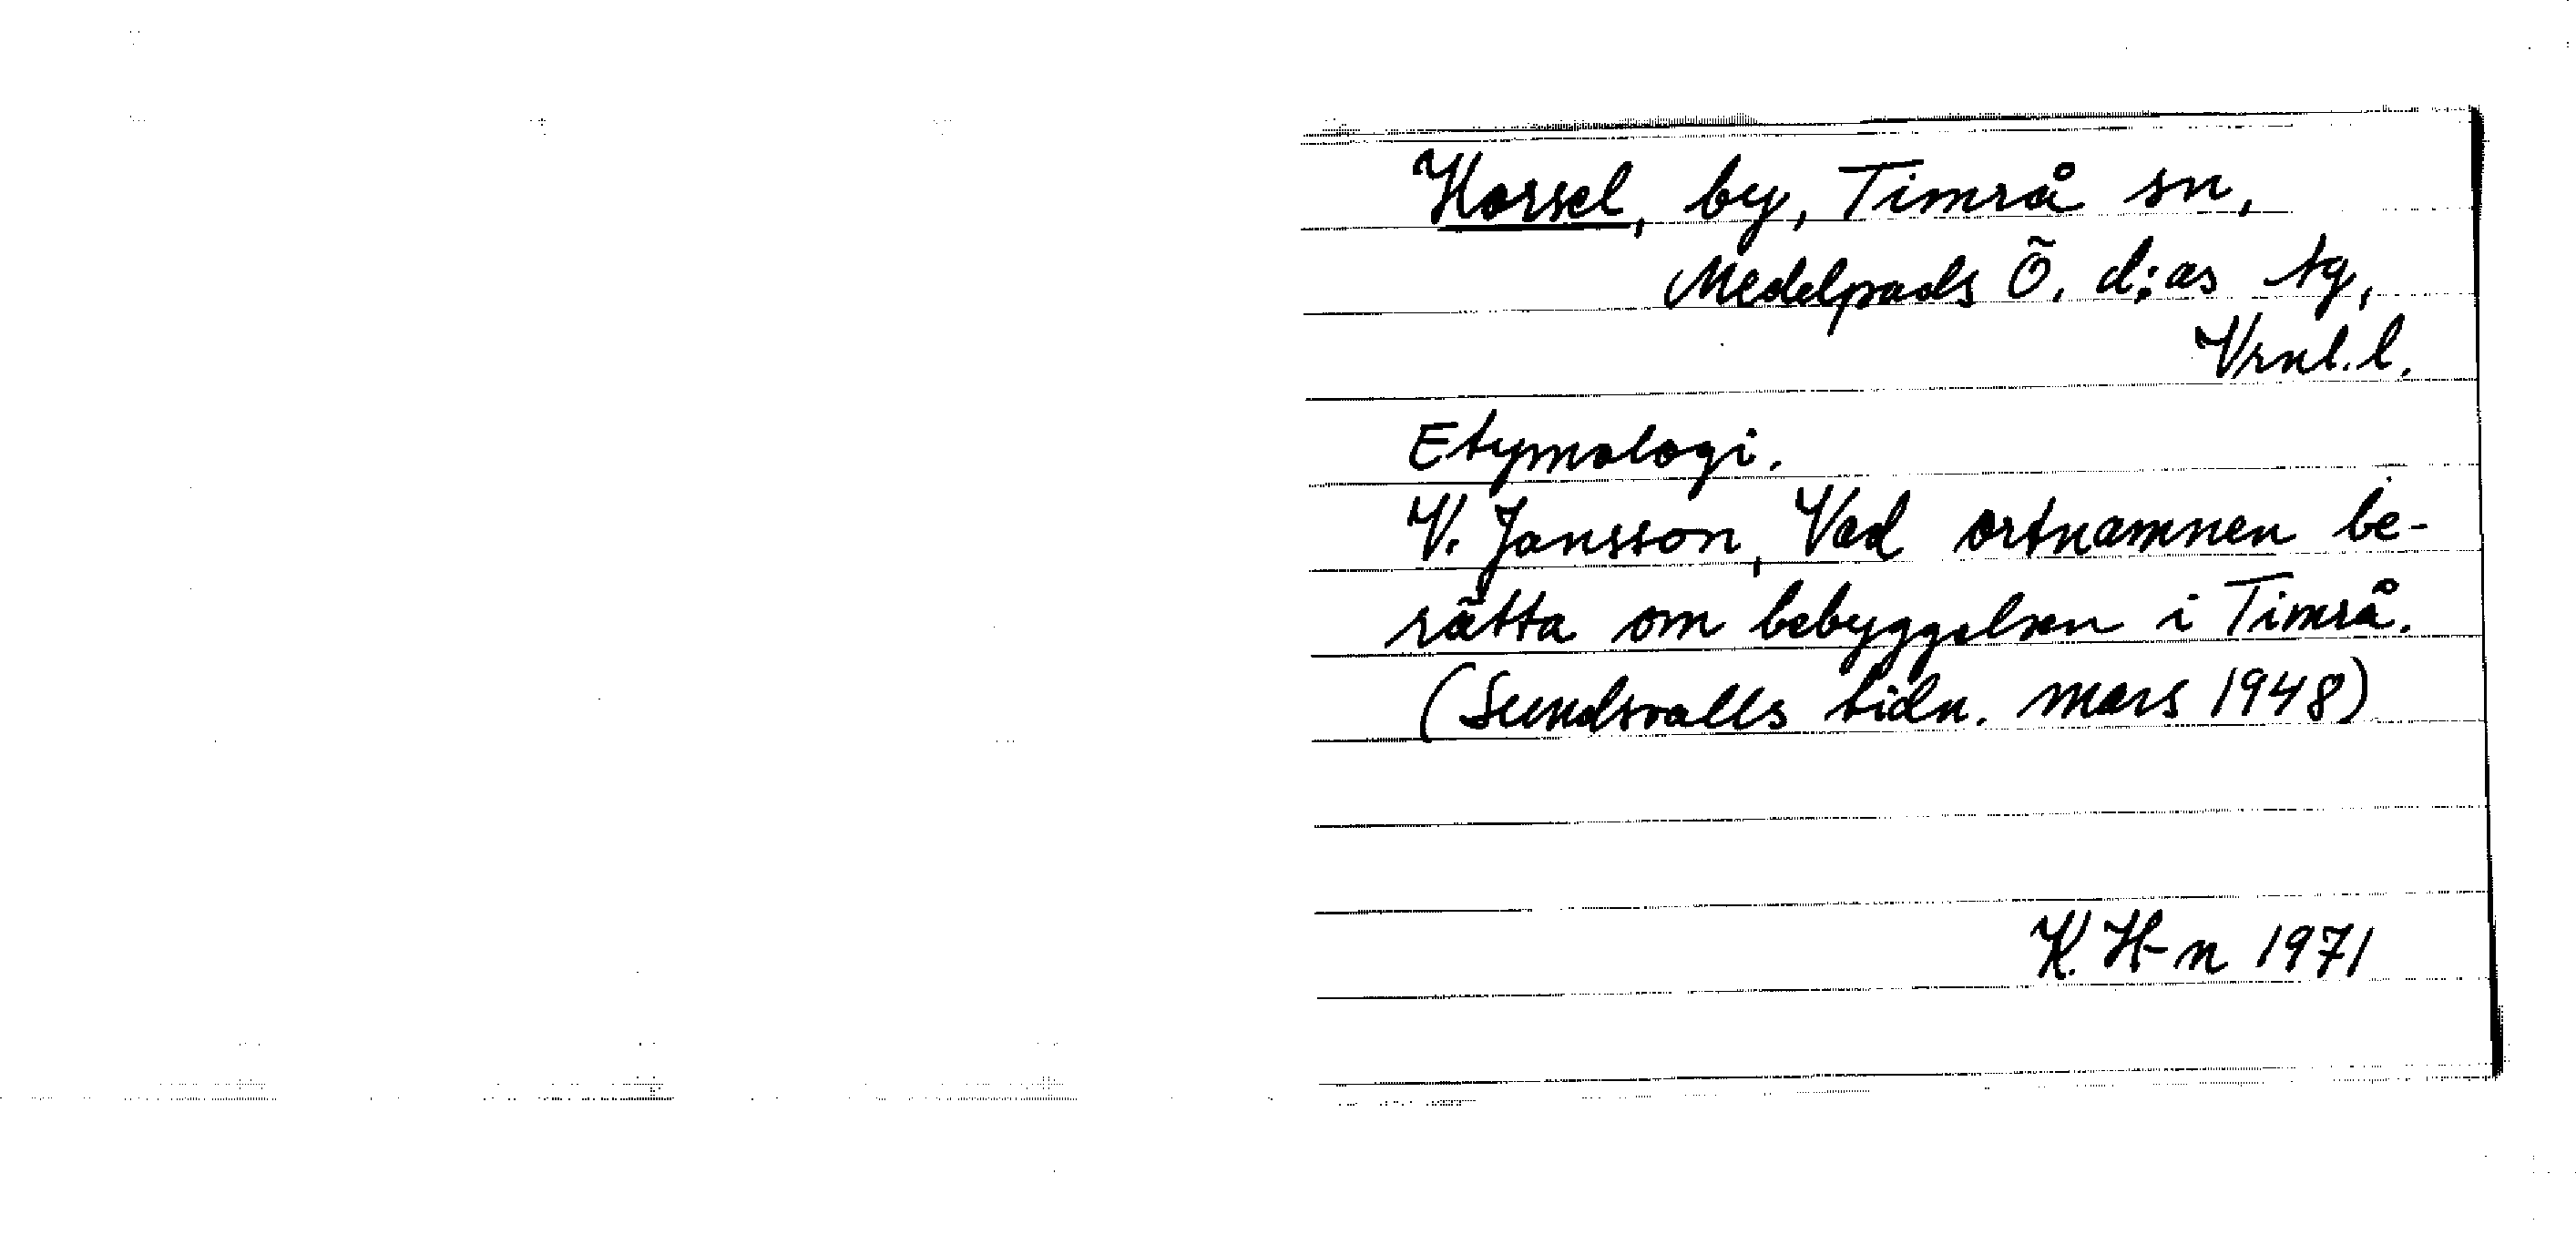 Horsel, by, Timrå sn,
Medelpads Ö. d:as tg,
Vrnl. l.
Etymologi.
V. Jansson, Vad ortnamnen be-
rätta om bebyggelsen i Timrå.
(Sundsvalls tidn. mars 1948)
K. H-n 1971